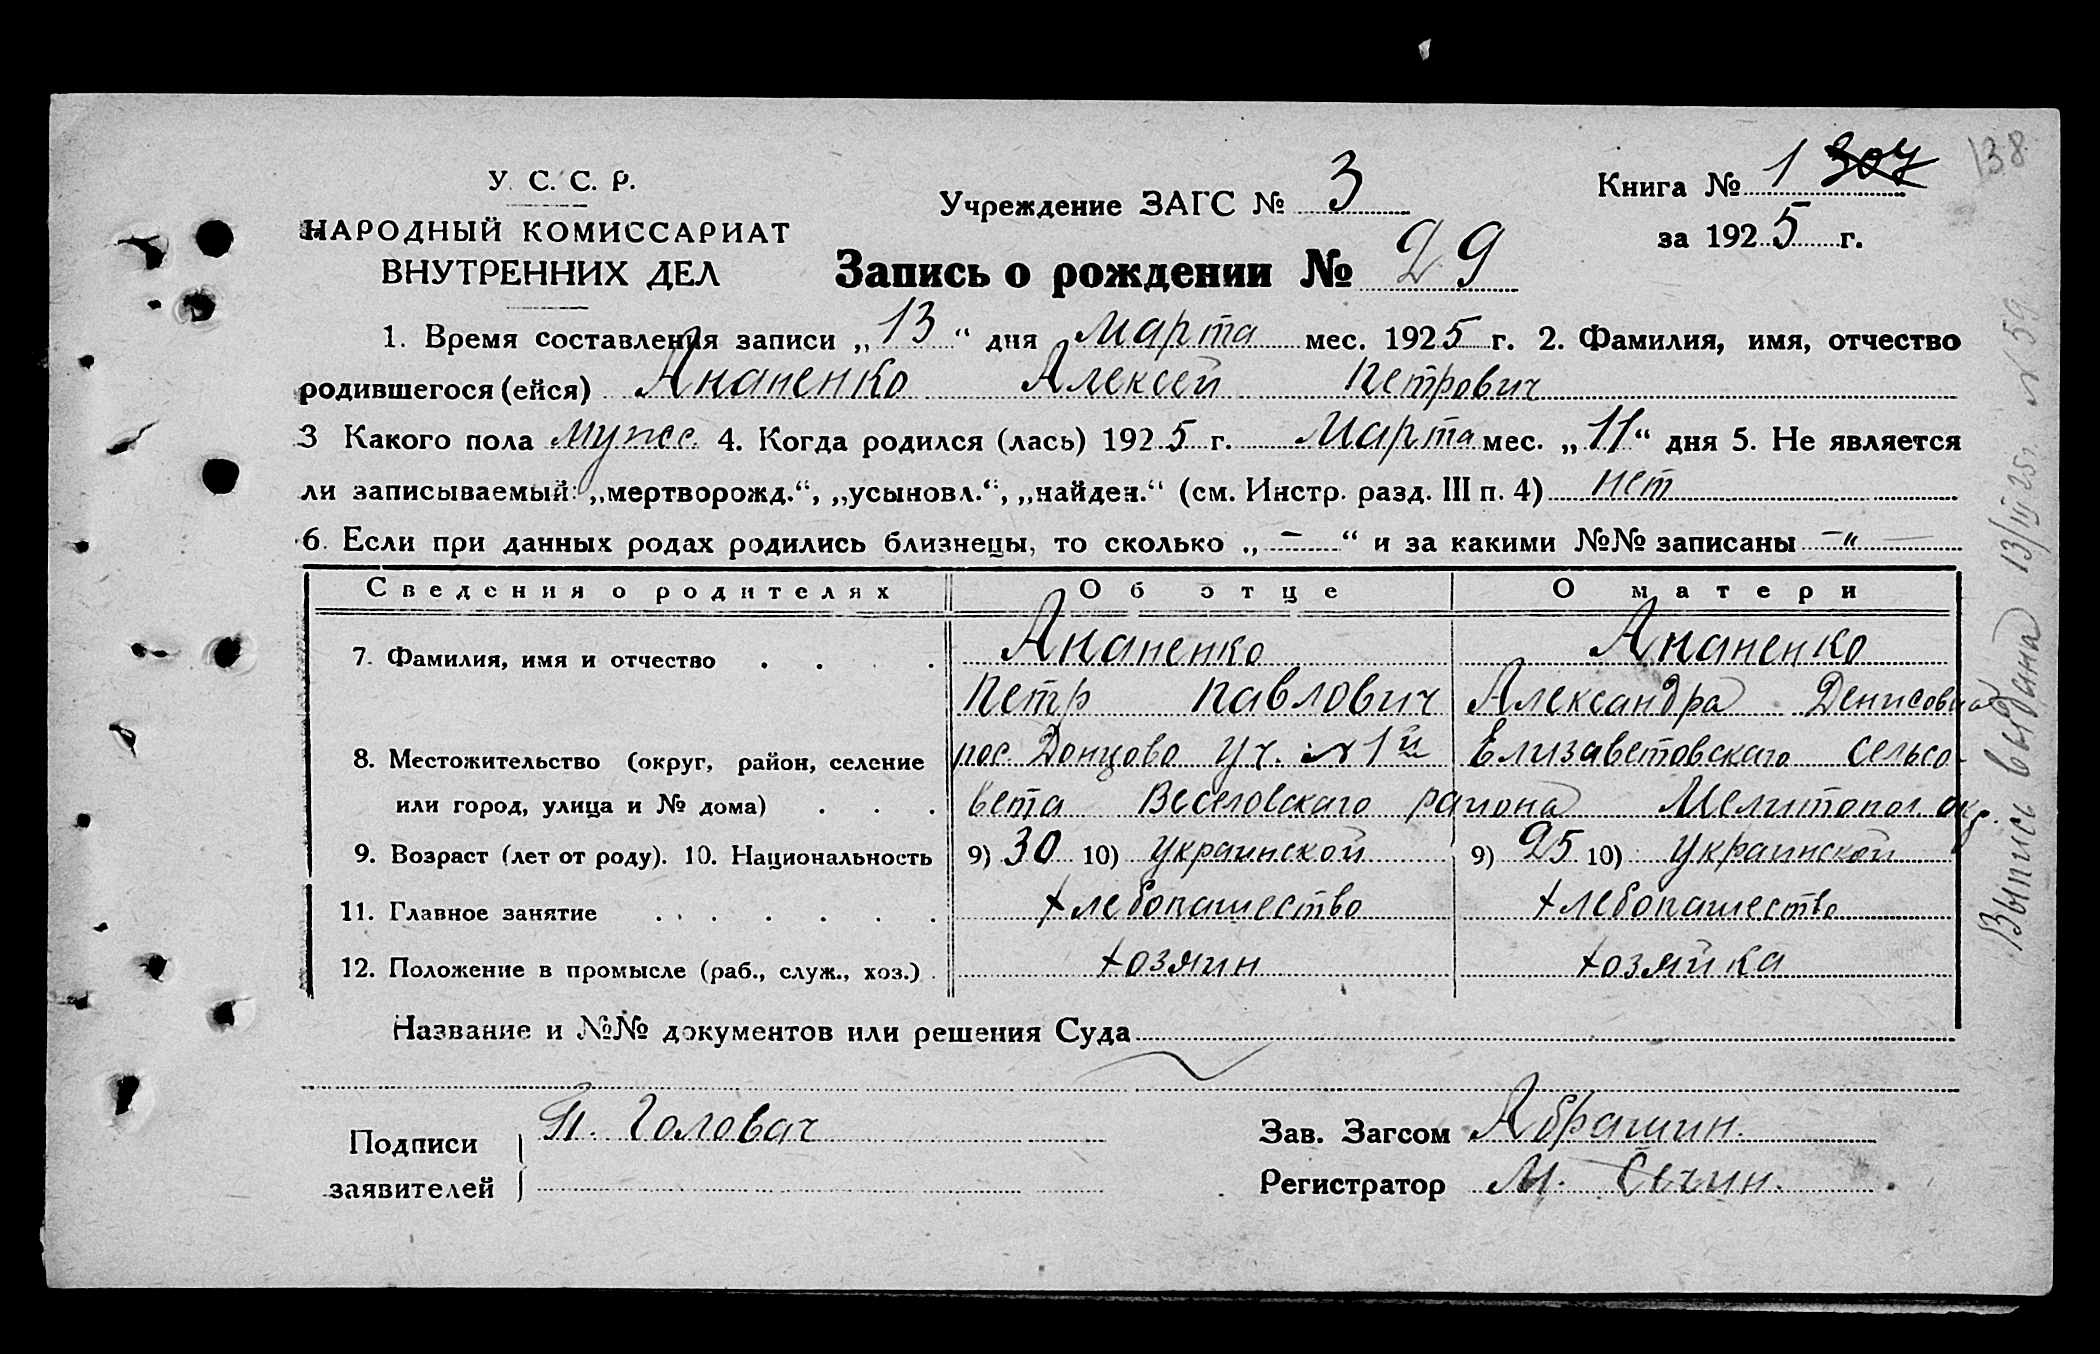 138
У. С. С. Р.
НАРОДНЫЙ КОМИССАРИАТ
ВНУТРЕННИХ ДЕЛ
Учреждение ЗАГС № 3
Книга № 1 307
за 1925 г.
Запись о рождении № 29
1. Время составления записи „13“ дня Марта мес. 1925 г. 2. Фамилия, имя, отчество
родившегося (ейся) Ананенко Алексей Петрович
3 Какого пола мужс. 4. Когда родился (лась) 1925 г. Марта мес. „11“ дня 5. Не является
ли записываемый: „мертворожд.“, „усыновл.“, „найден.“ (см. Инстр. разд. III п. 4) нет
6. Если при данных родах родились близнецы, то сколько „ — “ и за какими №№ записаны —„—
Сведения о родителях Об отце О матери
7. Фамилия, имя и отчество Ананенко Ананенко
Петр Павлович Александра Денисовна
8. Местожительство (округ, район, селение пос. Донцово уч. № 1й Елизаветовскаго сельсо-
или город, улица и № дома) вета Веселовскаго района Мелитопол окр.
9. Возраст (лет от роду). 10. Национальность 9) 30 10) украинской 9) 25 10) украинской
11. Главное занятие хлебопашество хлебопашество
12. Положение в промысле (раб., служ., хоз.) хозяин хозяйка
Название и №№ документов или решения Суда
Подписи П. Головач
заявителей
Зав. Загсом Абрашин.
Регистратор М. Сечин.
Выпись выдана 13/III 25г. № 59